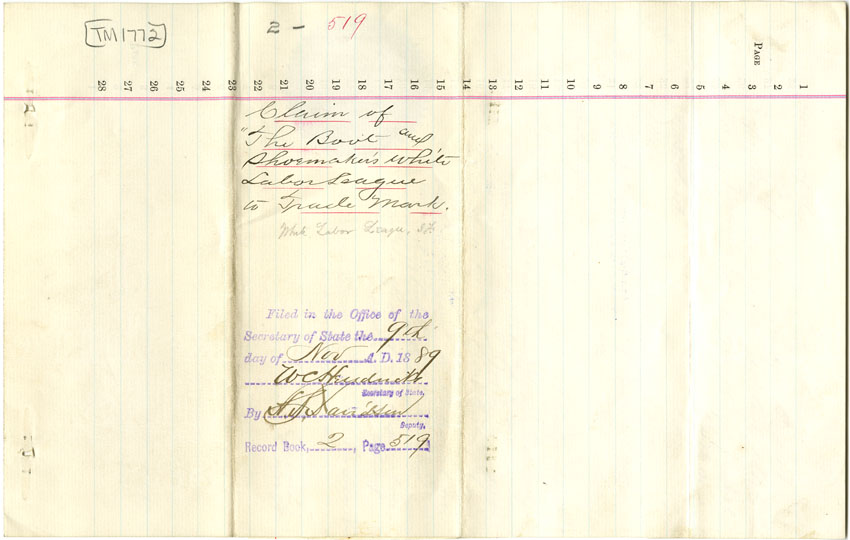 TM1772
2 - 519
PAGE
28 27 26 25 24 23 22 21 20 19 18 17 16 15 14 13 12 11 10 9 8 7 6 5 4 3 2 1
Claim of
"The Boot and
Shoemakers White
Labor League
to Trade Mark.
White Labor League, S.F.
Filed in the Office of the
Secretary of State the 9th
day of Nov A.D. 1889
W C Hendricks
Secretary of State,
By
Deputy.
Record Book, 2, Page 519